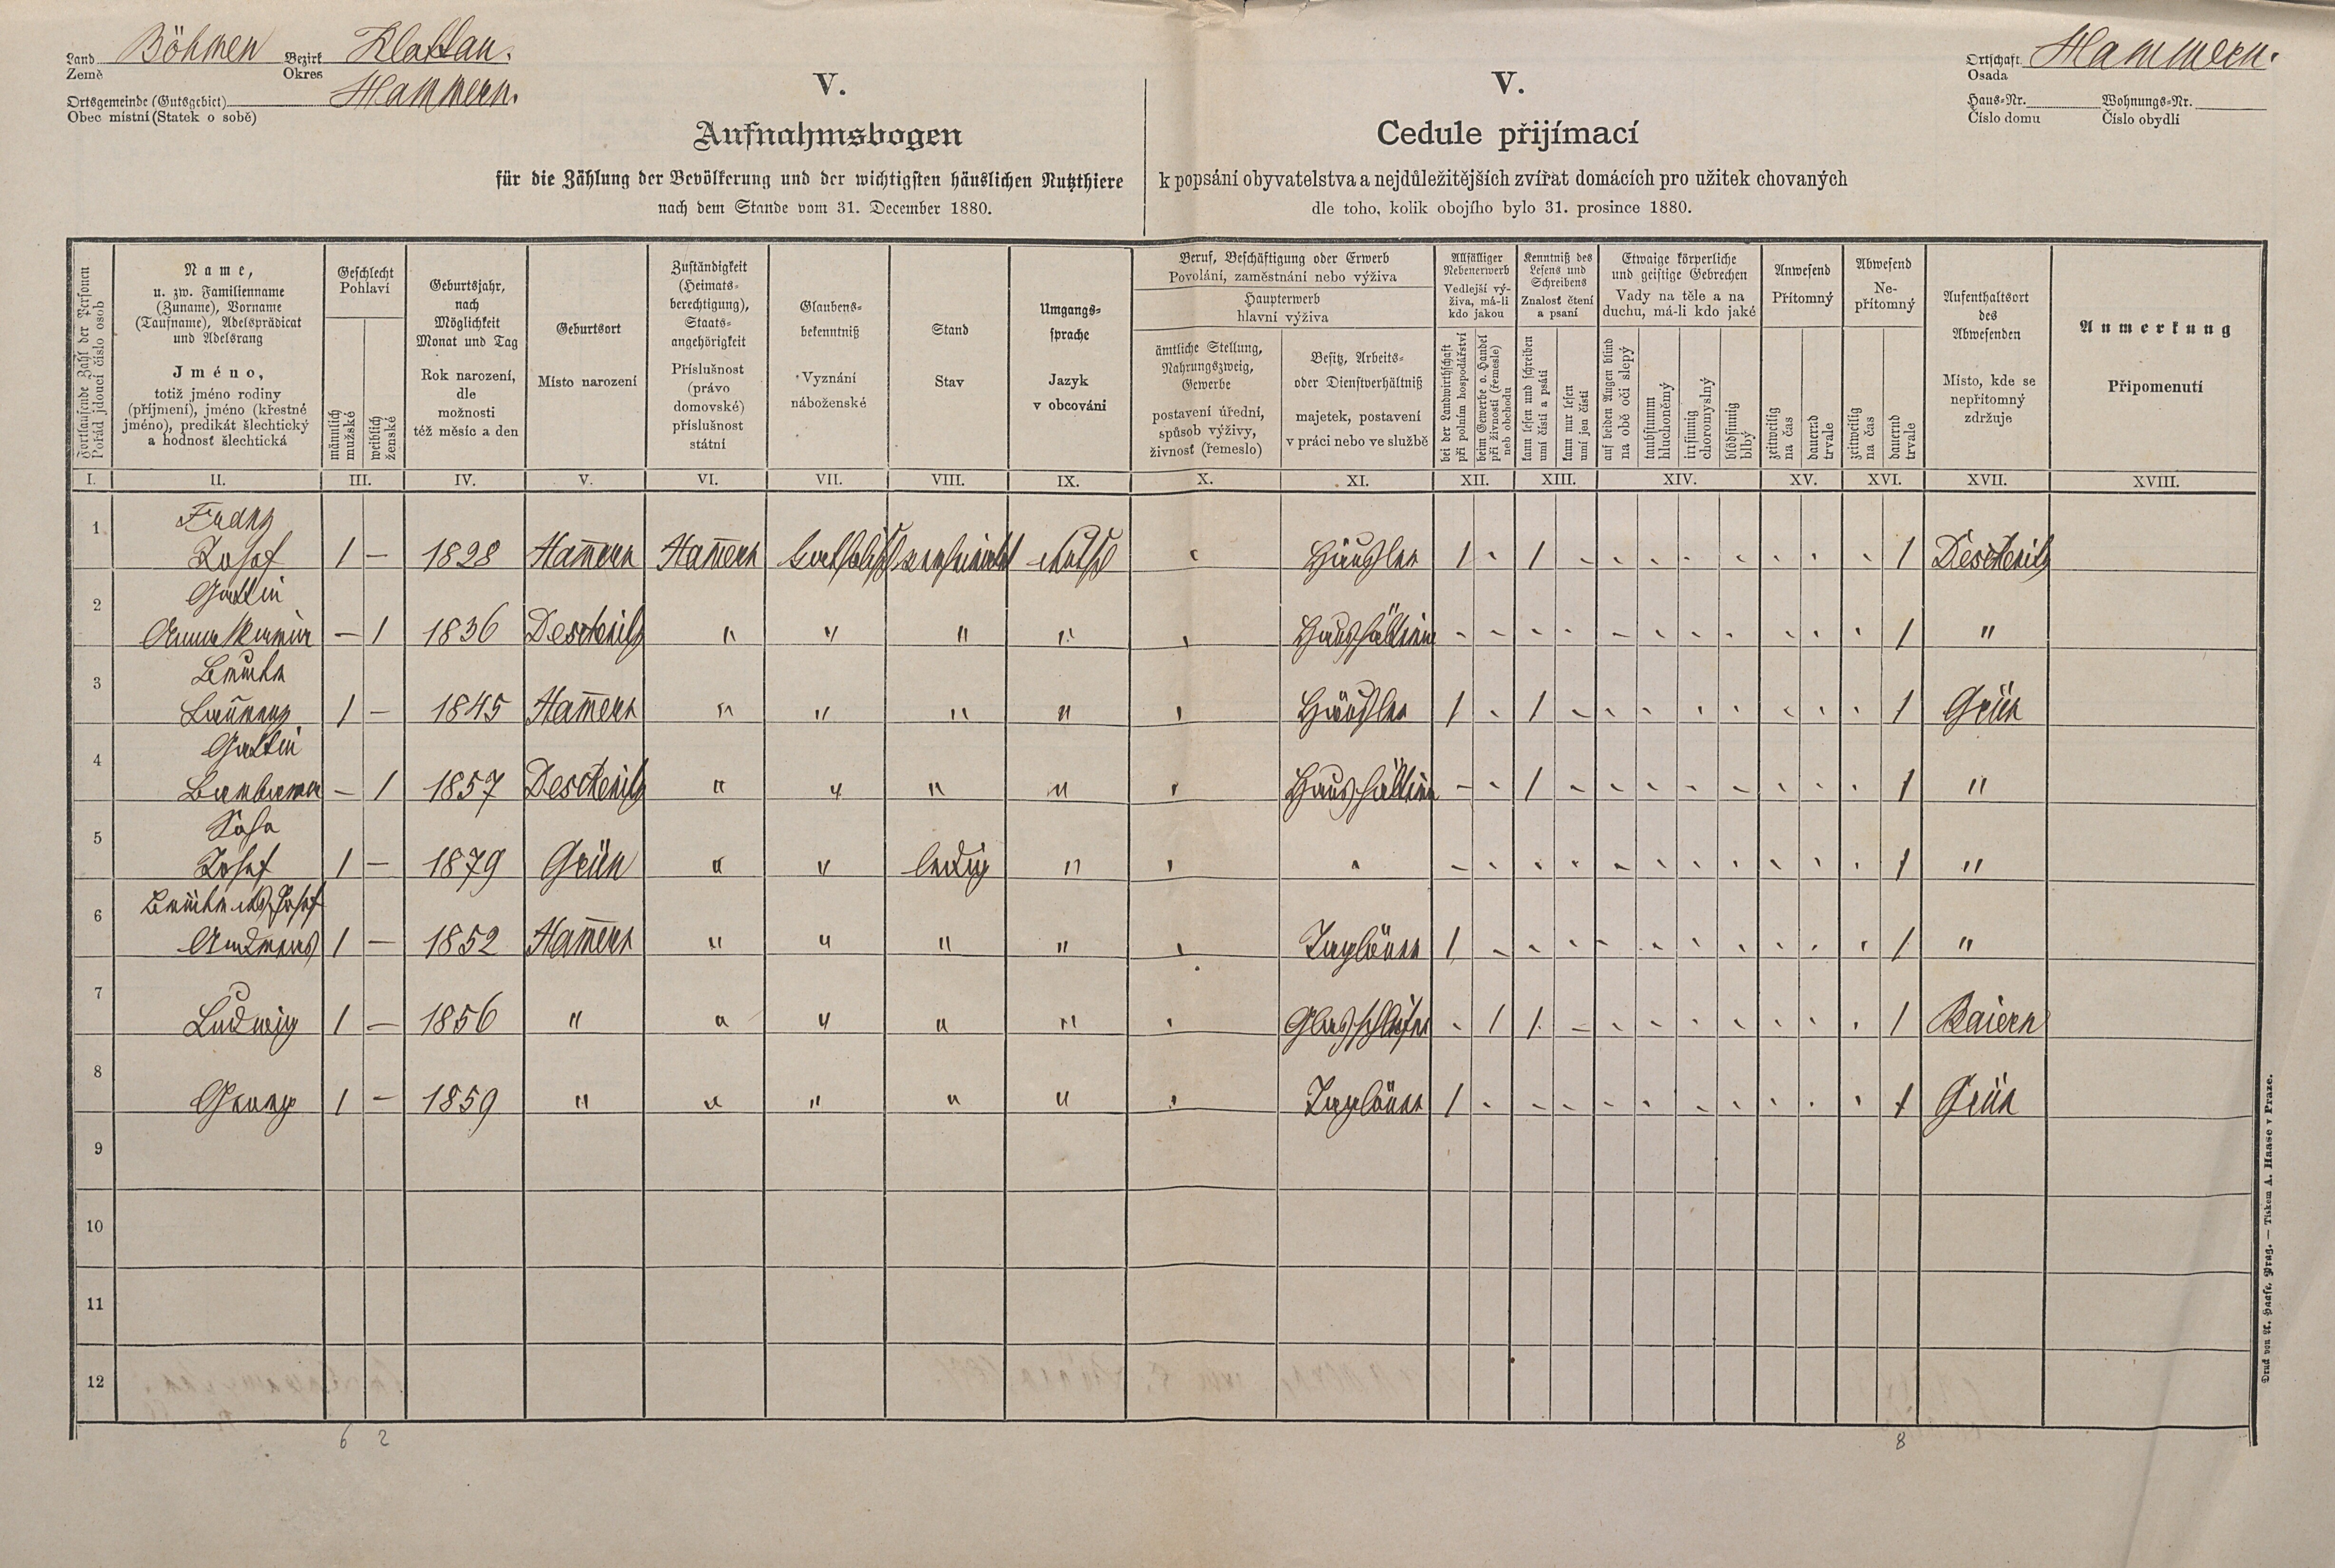 Land Böhmen Bezirk Klattau.
Země Okres
Ortsgemeinde (Gutsgebiet) Hammern.
Obec místní (Statek o sobě)
V.
Aufnahmsbogen
für die Zählung der Bevölkerung und der wichtigsten häuslichen Nutzthiere
nach dem Stande vom 31. December 1880.
V.
Cedule přijímací
k popsání obyvatelstva a nejdůležitějších zvířat domácích pro užitek chovaných
dle toho, kolik obojího bylo 31. prosince 1880.
Ortschaft Hammern.
Osada
Haus-Nr. Wohnungs-Nr.
Číslo domu Číslo obydlí
Fortlaufende Zahl der Personen
Pořád jdoucí číslo osob
Name,
u. zw. Familienname
(Zuname), Vorname
(Taufname), Adelsprädicat
und Adelsrang
Jméno,
totiž jméno rodiny
(příjmení), jméno (křestné
jméno), predikát šlechtický
a hodnosť šlechtická
Geschlecht
Pohlaví
männlich
mužské
weiblich
ženské
Geburtsjahr,
nach
Möglichkeit
Monat und Tag
Rok narození,
dle
možnosti
též měsíc a den
Geburtsort
Místo narození
Zuständigkeit
(Heimats-
berechtigung),
Staats-
angehörigkeit
Příslušnost
(právo
domovské)
příslušnost
státní
Glaubens-
bekenntniß
Vyznání
náboženské
Stand
Stav
Umgangs-
sprache
Jazyk
v obcování
Beruf, Beschäftigung oder Erwerb
Povolání, zaměstnání nebo výživa
Haupterwerb
hlavní výživa
ämtliche Stellung,
Nahrungszweig,
Gewerbe
postavení úřední,
spůsob výživy,
živnosť (řemeslo)
Besitz, Arbeits-
oder Dienstverhältniß
majetek, postavení
v práci nebo ve službě
Allfälliger
Nebenerwerb
Vedlejší vý-
živa, má-li
kdo jakou
bei der Landwirthschaft
při polním hospodářství
beim Gewerbe o. Handel
při živnosti (řemesle)
neb obchodu
Kenntniß des
Lesens und
Schreibens
Znalosť čtení
a psaní
kann lesen und schreiben
umí čísti a psáti
kann nur lesen
umí jen čísti
Etwaige körperliche
und geistige Gebrechen
Vady na těle a na
duchu, má-li kdo jaké
auf beiden Augen blind
na obě oči slepý
taubstumm
hluchoněmý
irrsinnig
choromyslný
blödsinnig
blbý
Anwesend
Přítomný
zeitweilig
na čas
dauernd
trvale
Abwesend
Ne-
přítomný
zeitweilig
na čas
dauernd
trvale
Aufenthaltsort
des
Abwesenden
Místo, kde se
nepřítomný
zdržuje
Anmerkung
Připomenutí
I. II. III. IV. V. VI. VII. VIII. IX. X. XI. XII. XIII. XIV. XV. XVI. XVII. XVIII.
Franz
1 Josef 1 – 1828 Ham̅ern Ham̅ern katholisch verheirathet deutsch Häusler 1 1 1 Deschenitz
Gattin
2 Anna Maria – 1 1836 Deschenitz " " " " Haushälterin 1 "
Bruder
3 Lorenz 1 – 1845 Ham̅ern " " " " Häusler 1 1 1 Grün
Gattin
4 Barbara – 1 1857 Deschenitz " " " " Haushälterin 1 1 "
Sohn
5 Josef 1 – 1879 Grün " " ledig " 1 "
Bruder des Josef
6 Andreas 1 – 1852 Ham̅ern " " " " Taglöhner 1 1 "
7 Ludwig 1 – 1856 " " " " " Glasschleifer 1 1 1 Baiern
8 Georg 1 – 1859 " " " " " Taglöhner 1 1 Grün
9
10
11
12
6 2 8
Druck von A. Haase, Prag. — Tiskem A. Haase v Praze.